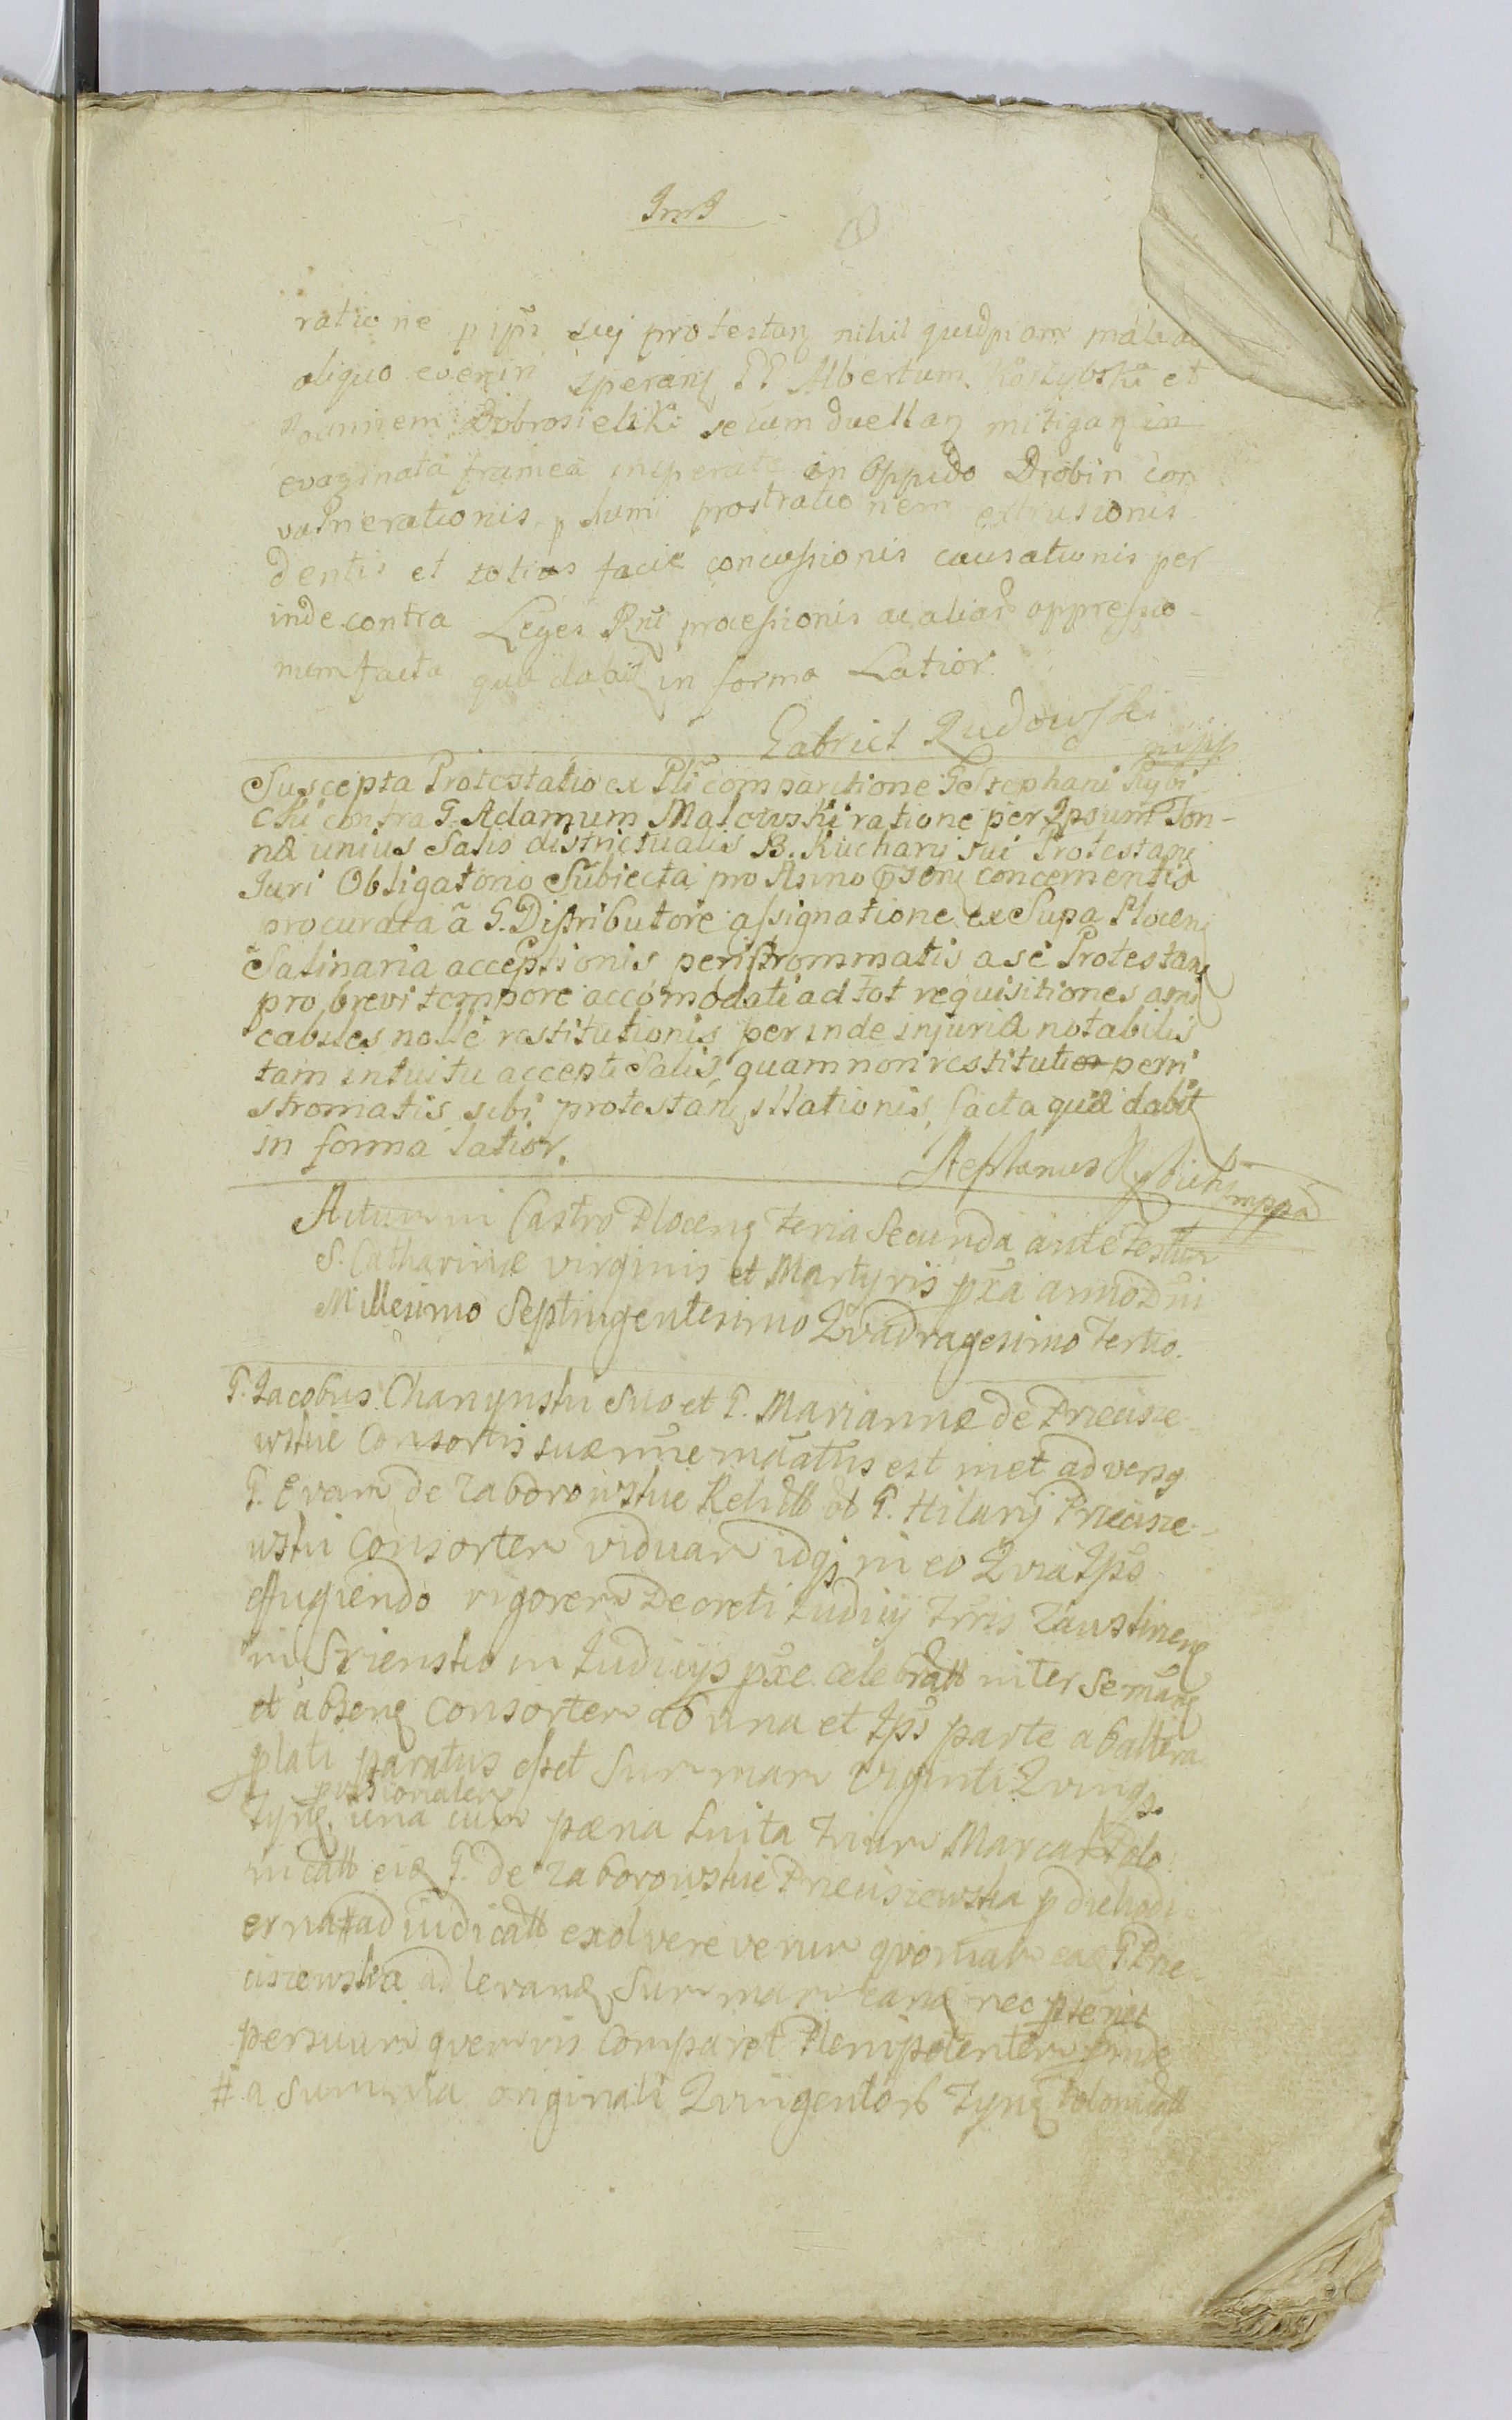 ratione p ipm suj protestan nihil quidpiam mali ab
aliquo eveniri speran PP Albertum Koskybski et
Joannem Dobrosielski secum duellan mitigan in
evaginata framea insperate in Oppido Drobin con
vulnerationis, p humi prostrationem extrusionis
dentis et totius facie concussionis causationis per
inde contra Leges Rni processionis ac alias oppressio-
nem facta qua dabit in forma Latior.
Gabriel Rudowski
mpp
Suscepta Protestatio ex Pli comparitione G. Stephani Rybi
cki contra G. Adamum Malowski ratione per Ipsum Ton-
na unius Salis districtualis B. Kuchary sui Protestanti
Juri Obligatorio Subiecta pro Anno pnti concernentis
procurata a G. Distributore assignatione ex Supa Plocen
Salinaria acceptionis peristrommatis a se Protestan
pro brevi tempore accomodati ad tot requisitiones ami
cabiles nolle restitutionis perinde injuria notabilis
tam intuitu accepti Salis, quam non restituti peri
stromatis sibi protestan illationis, facta qua dabit
in forma latior.
Stephanus Rybicki mppa
Actum in Castro Plocen Feria Secunda ante Festum
S. Catharinæ virginis et Martyris pxa anno Dni
Millesimo Septingentesimo Quadragesimo Tertio.
G. Jacobus Chanynski suo et G. Mariannæ de Prieciszе
wskie Consortis suæ nne mtatus est met adversq
G. Evam de Zaborowskie Relictt ol G. Hilarij Prieciszе
wski Consortem viduam idq in eo Quia Ips
effugiendo rigorem Decreti Judicij Trris Zawskrien
in Sriensko in Judicijs pxe celebratt inter se man
et absen Consortem ab una et Ips parte ab altera
plati paratus esset Summam Viginti Quinq
provisionalem
Tynf. una cum pæna Luita Trium Marcar Polo
nicatt eiq G. de Zaborowskie Prieciszewska p die hodi
erna # adiudicatt exolvere verum quoniam eaq G. Prie
ciszewska ad levan Summam eanq nec p se nec
per suum quemvis comparet Plenipotentem proinde
# a Summa originali Quingentorb Tynf Polonicatt